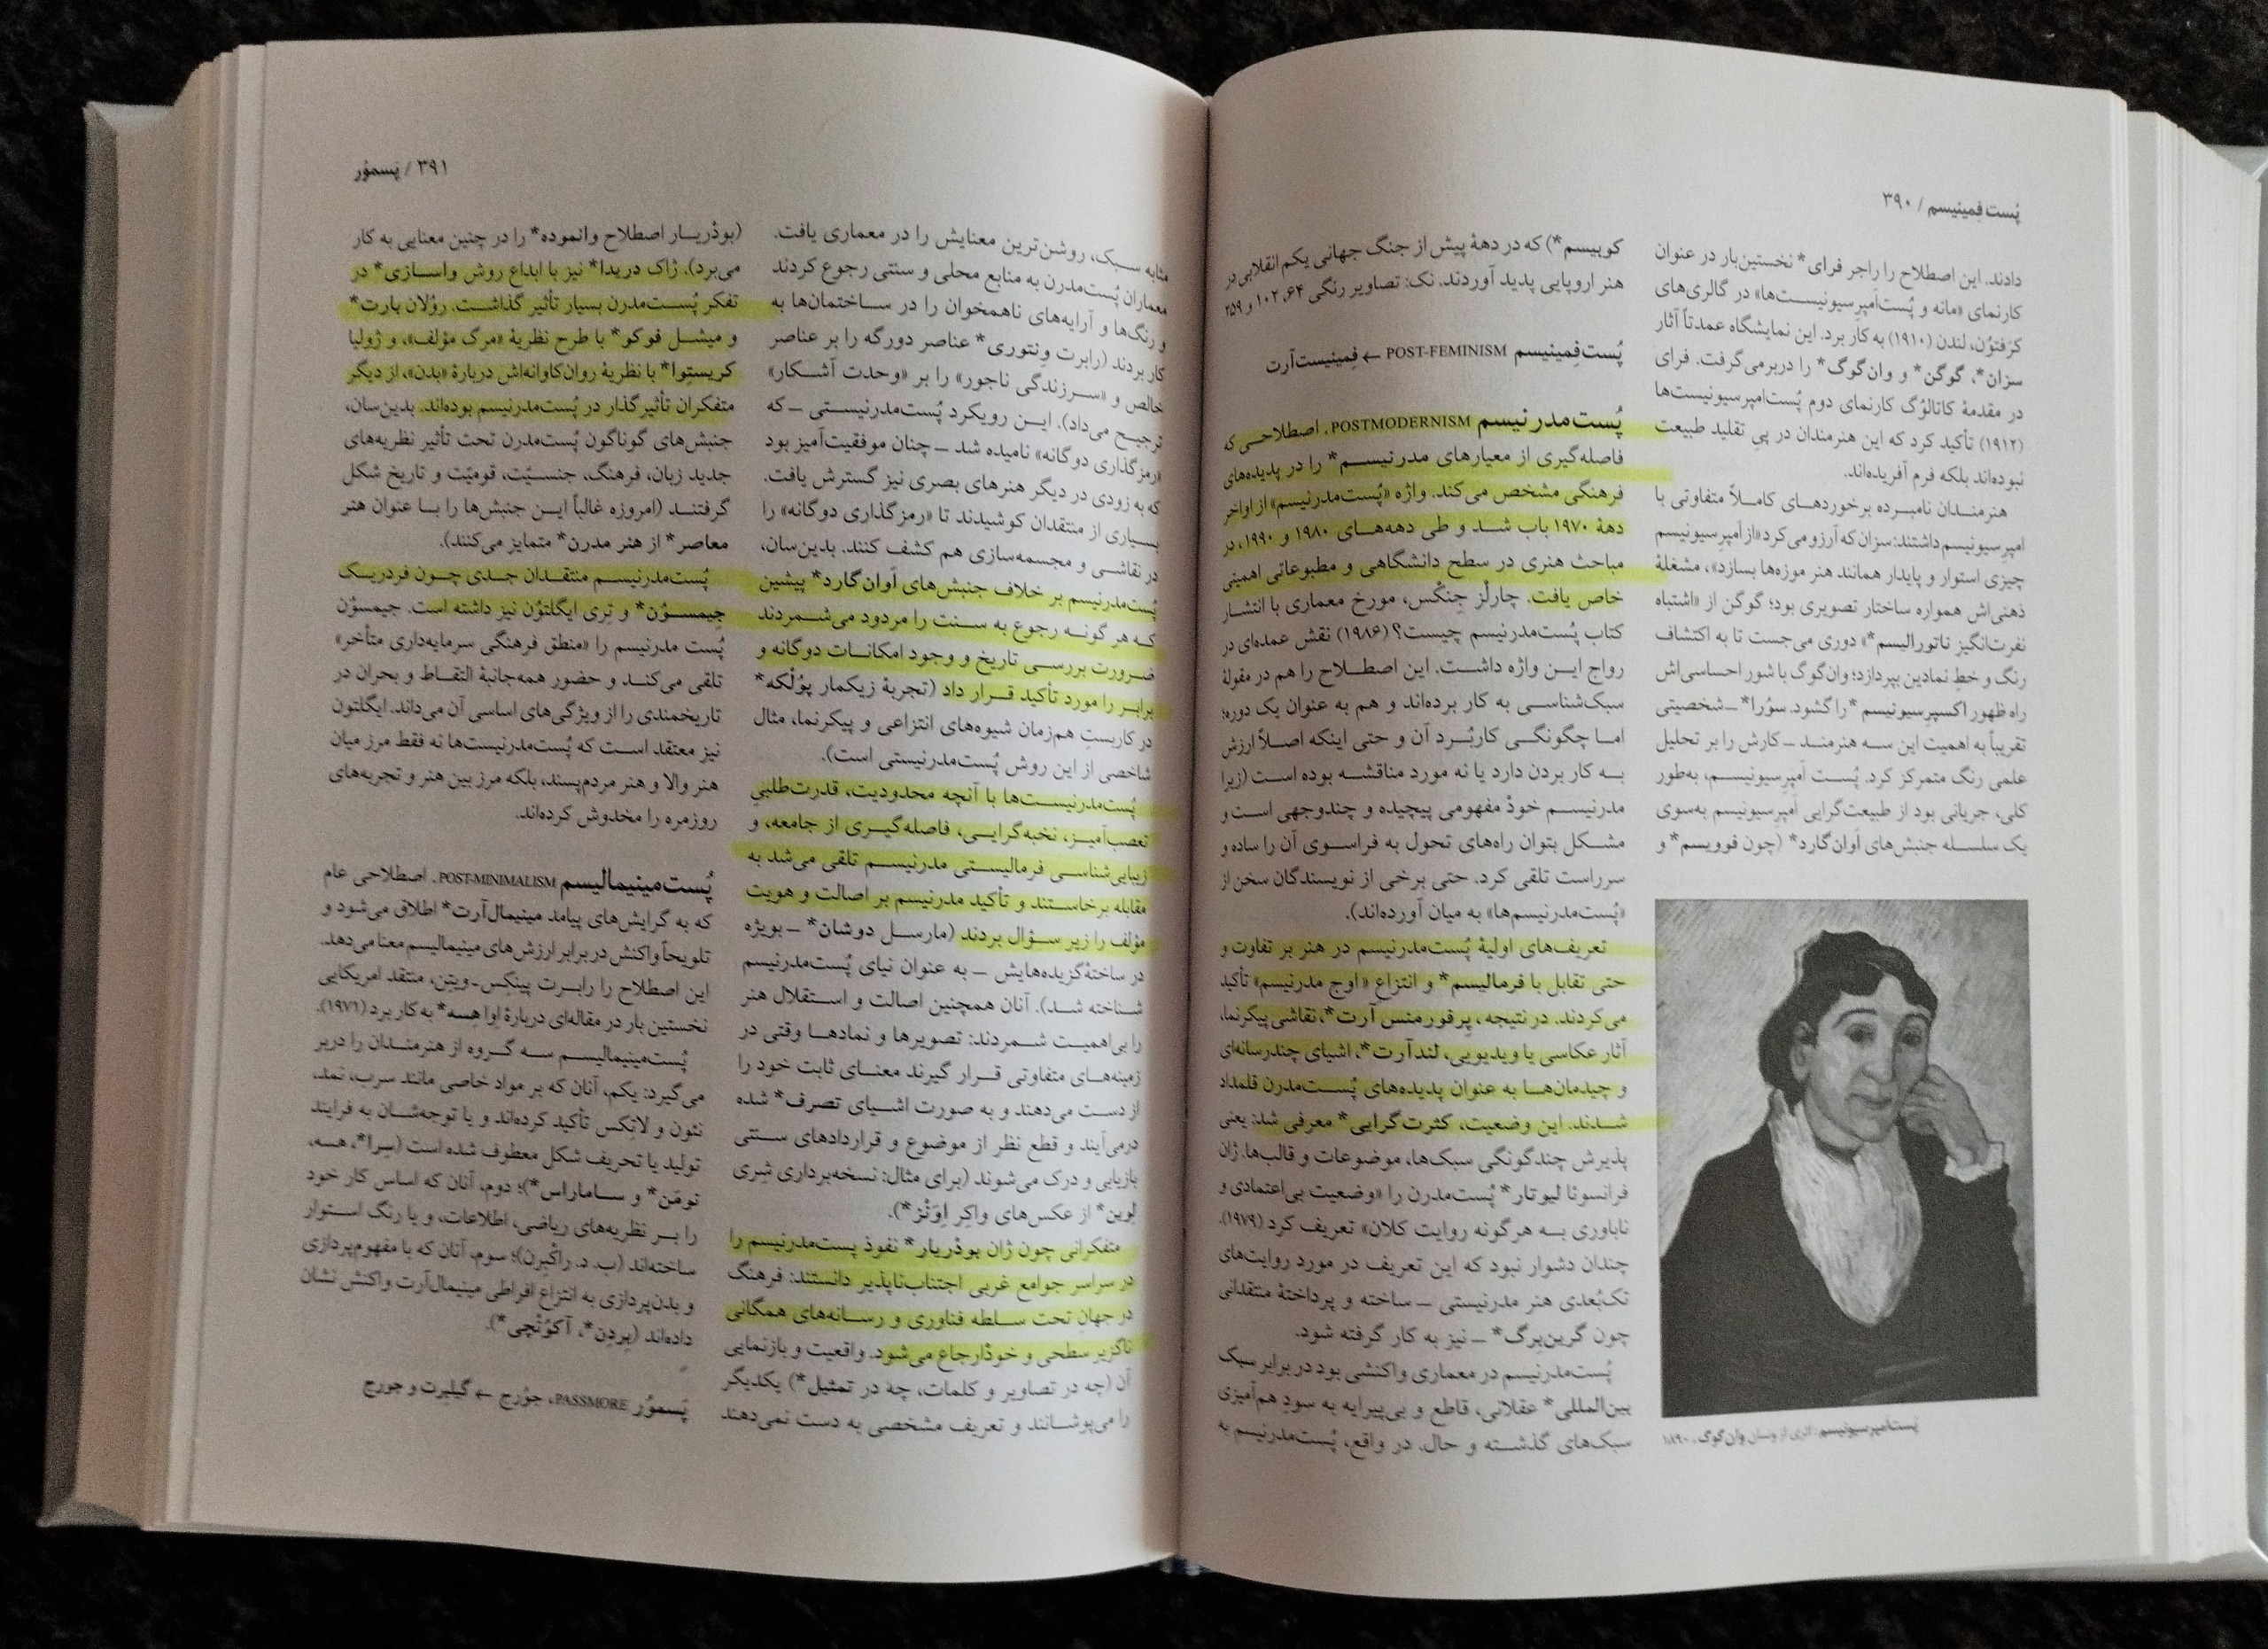 پُست‌فِمینیسم / ۳۹۰
دادند. این اصطلاح را راجر فرای* نخستین‌بار در عنوان
کارنمای «مانه و پُست‌اَمپرِسیونیست‌ها» در گالری‌های
گرَفتوُن، لندن (۱۹۱۰) به کار برد. این نمایشگاه عمدتاً آثار
سزان*، گوگن* و وان‌گوگ* را دربرمی‌گرفت. فرای
در مقدمهٔ کاتالوُگ کارنمای دوم پُست‌اَمپرِسیونیست‌ها
(۱۹۱۲) تأکید کرد که این هنرمندان در پیِ تقلید طبیعت
نبوده‌اند بلکه فرم آفریده‌اند.
هنرمندان نامبرده برخوردهای کاملاً متفاوتی با
امپرِسیونیسم داشتند: سزان که آرزو می‌کرد «از اَمپرِسیونیسم
چیزی استوار و پایدار همانند هنر موزه‌ها بسازد»، مشغلهٔ
ذهنی‌اش همواره ساختار تصویری بود؛ گوگن از «اشتباه
نفرت‌انگیز ناتورالیسم*» دوری می‌جست تا به اکتشاف
رنگ و خطِ نمادین بپردازد؛ وان‌گوگ با شور احساسی‌اش
راه ظهور اکسپرِسیونیسم* را گشود. سوُرا* ـ شخصیتی
تقریباً به اهمیت این سه هنرمند ـ کارش را بر تحلیل
علمی رنگ متمرکز کرد. پُست اَمپرِسیونیسم، به‌طور
کلی، جریانی بود از طبیعت‌گرایی اَمپرِسیونیسم به‌سوی
یک سلسله جنبش‌های اَوان‌گارد* (چون فوویسم* و
پُست‌اَمپرِسیونیسم: اثری از ونسان وان‌گوگ، ۱۸۹۰
کوبیسم*) که در دههٔ پیش از جنگ جهانی یکم انقلابی در
هنر اروپایی پدید آوردند. نک: تصاویر رنگی ۶۴، ۱۰۲ و ۲۵۹
پُست‌فِمینیسم POST-FEMINISM ← فِمینیست‌آرت
پُست‌مدرنیسم POSTMODERNISM. اصطلاحی که
فاصله‌گیری از معیارهای مدرنیسم* را در پدیده‌های
فرهنگی مشخص می‌کند. واژه «پُست‌مدرنیسم» از اواخر
دههٔ ۱۹۷۰ باب شد و طی دهه‌های ۱۹۸۰ و ۱۹۹۰، در
مباحث هنری در سطح دانشگاهی و مطبوعاتی اهمیتی
خاص یافت. چارلْز جِنکْس، مورخ معماری با انتشار
کتاب پُست‌مدرنیسم چیست؟ (۱۹۸۶) نقش عمده‌ای در
رواج این واژه داشت. این اصطلاح را هم در مقولهٔ
سبک‌شناسی به کار برده‌اند و هم به عنوان یک دوره؛
اما چگونگی کاربُرد آن و حتی اینکه اصلاً ارزش
به کار بردن دارد یا نه مورد مناقشه بوده است (زیرا
مدرنیسم خودْ مفهومی پیچیده و چندوجهی است و
مشکل بتوان راه‌های تحول به فراسوی آن را ساده و
سرراست تلقی کرد. حتی برخی از نویسندگان سخن از
«پُست‌مدرنیسم‌ها» به میان آورده‌اند).
تعریف‌های اولیهٔ پُست‌مدرنیسم در هنر بر تفاوت و
حتی تقابل با فرمالیسم* و انتزاع «اوج مدرنیسم» تأکید
می‌کردند. در نتیجه، پرفورمنس آرت*، نقاشی پیکرنما،
آثار عکاسی یا ویدیویی، لندآرت*، اشیای چندرسانه‌ای
و چیدمان‌ها به عنوان پدیده‌های پُست‌مدرن قلمداد
شدند. این وضعیت، کثرت‌گرایی* معرفی شد: یعنی
پذیرش چندگونگی سبک‌ها، موضوعات و قالب‌ها. ژان
فرانسوئا لیوتار* پُست‌مدرن را «وضعیت بی‌اعتمادی و
ناباوری به هرگونه روایت کلان» تعریف کرد (۱۹۷۹).
چندان دشوار نبود که این تعریف در مورد روایت‌های
تک‌بُعدی هنر مدرنیستی ـ ساخته و پرداختهٔ منتقدانی
چون گرین‌برگ* ـ نیز به کار گرفته شود.
پُست‌مدرنیسم در معماری واکنشی بود در برابر سبک
بین‌المللی* عقلانی، قاطع و بی‌پیرایه به سودِ هم‌آمیزی
سبک‌های گذشته و حال. در واقع، پُست‌مدرنیسم به
۳۹۱ / پَسموُر
مثابه سبک، روشن‌ترین معنایش را در معماری یافت.
معماران پُست‌مدرن به منابع محلی و سنتی رجوع کردند
و رنگ‌ها و آرایه‌های ناهمخوان را در ساختمان‌ها به
کار بردند (رابرت وِنتوری* عناصر دورگه را بر عناصر
خالص و «سرزندگی ناجور» را بر «وحدت آشکار»
ترجیح می‌داد). این رویکرد پُست‌مدرنیستی ـ که
«رمزگذاری دوگانه» نامیده شد ـ چنان موفقیت‌آمیز بود
که به زودی در دیگر هنرهای بصری نیز گسترش یافت.
بسیاری از منتقدان کوشیدند تا «رمزگذاری دوگانه» را
در نقاشی و مجسمه‌سازی هم کشف کنند. بدین‌سان،
پُست‌مدرنیسم بر خلاف جنبش‌های اَوان‌گارد* پیشین
که هر گونه رجوع به سنت را مردود می‌شمردند
ضرورت بررسی تاریخ و وجود امکانات دوگانه و
برابر را مورد تأکید قرار داد (تجربهٔ زیکمار پوُلْکه*
در کاربستِ هم‌زمان شیوه‌های انتزاعی و پیکرنما، مثال
شاخصی از این روش پُست‌مدرنیستی است).
پُست‌مدرنیست‌ها با آنچه محدودیت، قدرت‌طلبیِ
تعصب‌آمیز، نخبه‌گرایی، فاصله‌گیری از جامعه، و
زیبایی‌شناسی فرمالیستی مدرنیسم تلقی می‌شد به
مقابله برخاستند و تأکید مدرنیسم بر اصالت و هویت
مؤلف را زیر سؤال بردند (مارسل دوشان* ـ بویژه
در ساخته‌گزیده‌هایش ـ به عنوان نیای پُست‌مدرنیسم
شناخته شد). آنان همچنین اصالت و استقلال هنر
را بی‌اهمیت شمردند: تصویرها و نمادها وقتی در
زمینه‌های متفاوتی قرار گیرند معنای ثابت خود را
از دست می‌دهند و به صورت اشیای تصرف* شده
درمی‌آیند و قطع نظر از موضوع و قراردادهای سنتی
بازیابی و درک می‌شوند (برای مثال: نسخه‌برداری شِری
لِوین* از عکس‌های واکِر اِوَنْز*).
متفکرانی چون ژان بودْریار* نفوذ پست‌مدرنیسم را
در سراسر جوامع غربی اجتناب‌ناپذیر دانستند: فرهنگ
در جهانِ تحت سلطه فناوری و رسانه‌های همگانی
ناگزیر سطحی و خودْارجاع می‌شود. واقعیت و بازنمایی
آن (چه در تصاویر و کلمات، چه در تمثیل*) یکدیگر
را می‌پوشانند و تعریف مشخصی به دست نمی‌دهند
(بودْریار اصطلاح وانموده* را در چنین معنایی به کار
می‌برد). ژاک دریدا* نیز با ابداع روش واسازی* در
تفکر پُست‌مدرن بسیار تأثیر گذاشت. روُلان بارت*
و میشل فوکو* با طرح نظریهٔ «مرگ مؤلف»، و ژولیا
کریستِوا* با نظریهٔ روان‌کاوانه‌اش دربارهٔ «بدن»، از دیگر
متفکران تأثیرگذار در پُست‌مدرنیسم بوده‌اند. بدین‌سان،
جنبش‌های گوناگون پُست‌مدرن تحت تأثیر نظریه‌های
جدید زبان، فرهنگ، جنسیّت، قومیّت و تاریخ شکل
گرفتند (امروزه غالباً این جنبش‌ها را با عنوان هنر
معاصر* از هنر مدرن* متمایز می‌کنند).
پُست‌مدرنیسم منتقدان جدی چون فردریک
جِیمسوُن* و تِری ایگلتوُن نیز داشته است. جیمسوُن
پُست مدرنیسم را «منطق فرهنگی سرمایه‌داری متأخر»
تلقی می‌کند و حضور همه‌جانبهٔ التقاط و بحران در
تاریخمندی را از ویژگی‌های اساسی آن می‌داند. ایگلتون
نیز معتقد است که پُست‌مدرنیست‌ها نه فقط مرز میان
هنر والا و هنر مردم‌پسند، بلکه مرز بین هنر و تجربه‌های
روزمره را مخدوش کرده‌اند.
پُست‌مینیمالیسم POST-MINIMALISM. اصطلاحی عام
که به گرایش‌های پیامد مینیمال‌آرت* اطلاق می‌شود و
تلویحاً واکنش در برابر ارزش‌های مینیمالیسم معنا می‌دهد.
این اصطلاح را رابرت پینکِس‌ـ‌ویتِن، منتقد امریکایی
نخستین بار در مقاله‌ای دربارهٔ اِوا هِسه* به کار برد (۱۹۷۱).
پُست‌مینیمالیسم سه گروه از هنرمندان را دربر
می‌گیرد: یکم، آنان که بر مواد خاصی مانند سرب، نمد،
نئون و لاتِکس تأکید کرده‌اند و یا توجه‌شان به فرایند
تولید یا تحریف شکل معطوف شده است (سِرا*، هسه،
نومَن* و ساماراس*)؛ دوم، آنان که اساس کار خود
را بر نظریه‌های ریاضی، اطلاعات، و یا رنگ استوار
ساخته‌اند (ب. د. راکْبِرن)؛ سوم، آنان که با مفهوم‌پردازی
و بدن‌پردازی به انتزاعِ افراطی مینیمال‌آرت واکنش نشان
داده‌اند (بِردِن*، آکوُنْچی*).
پَسموُر PASSMORE، جوُرج ← گیلبِرت و جورج